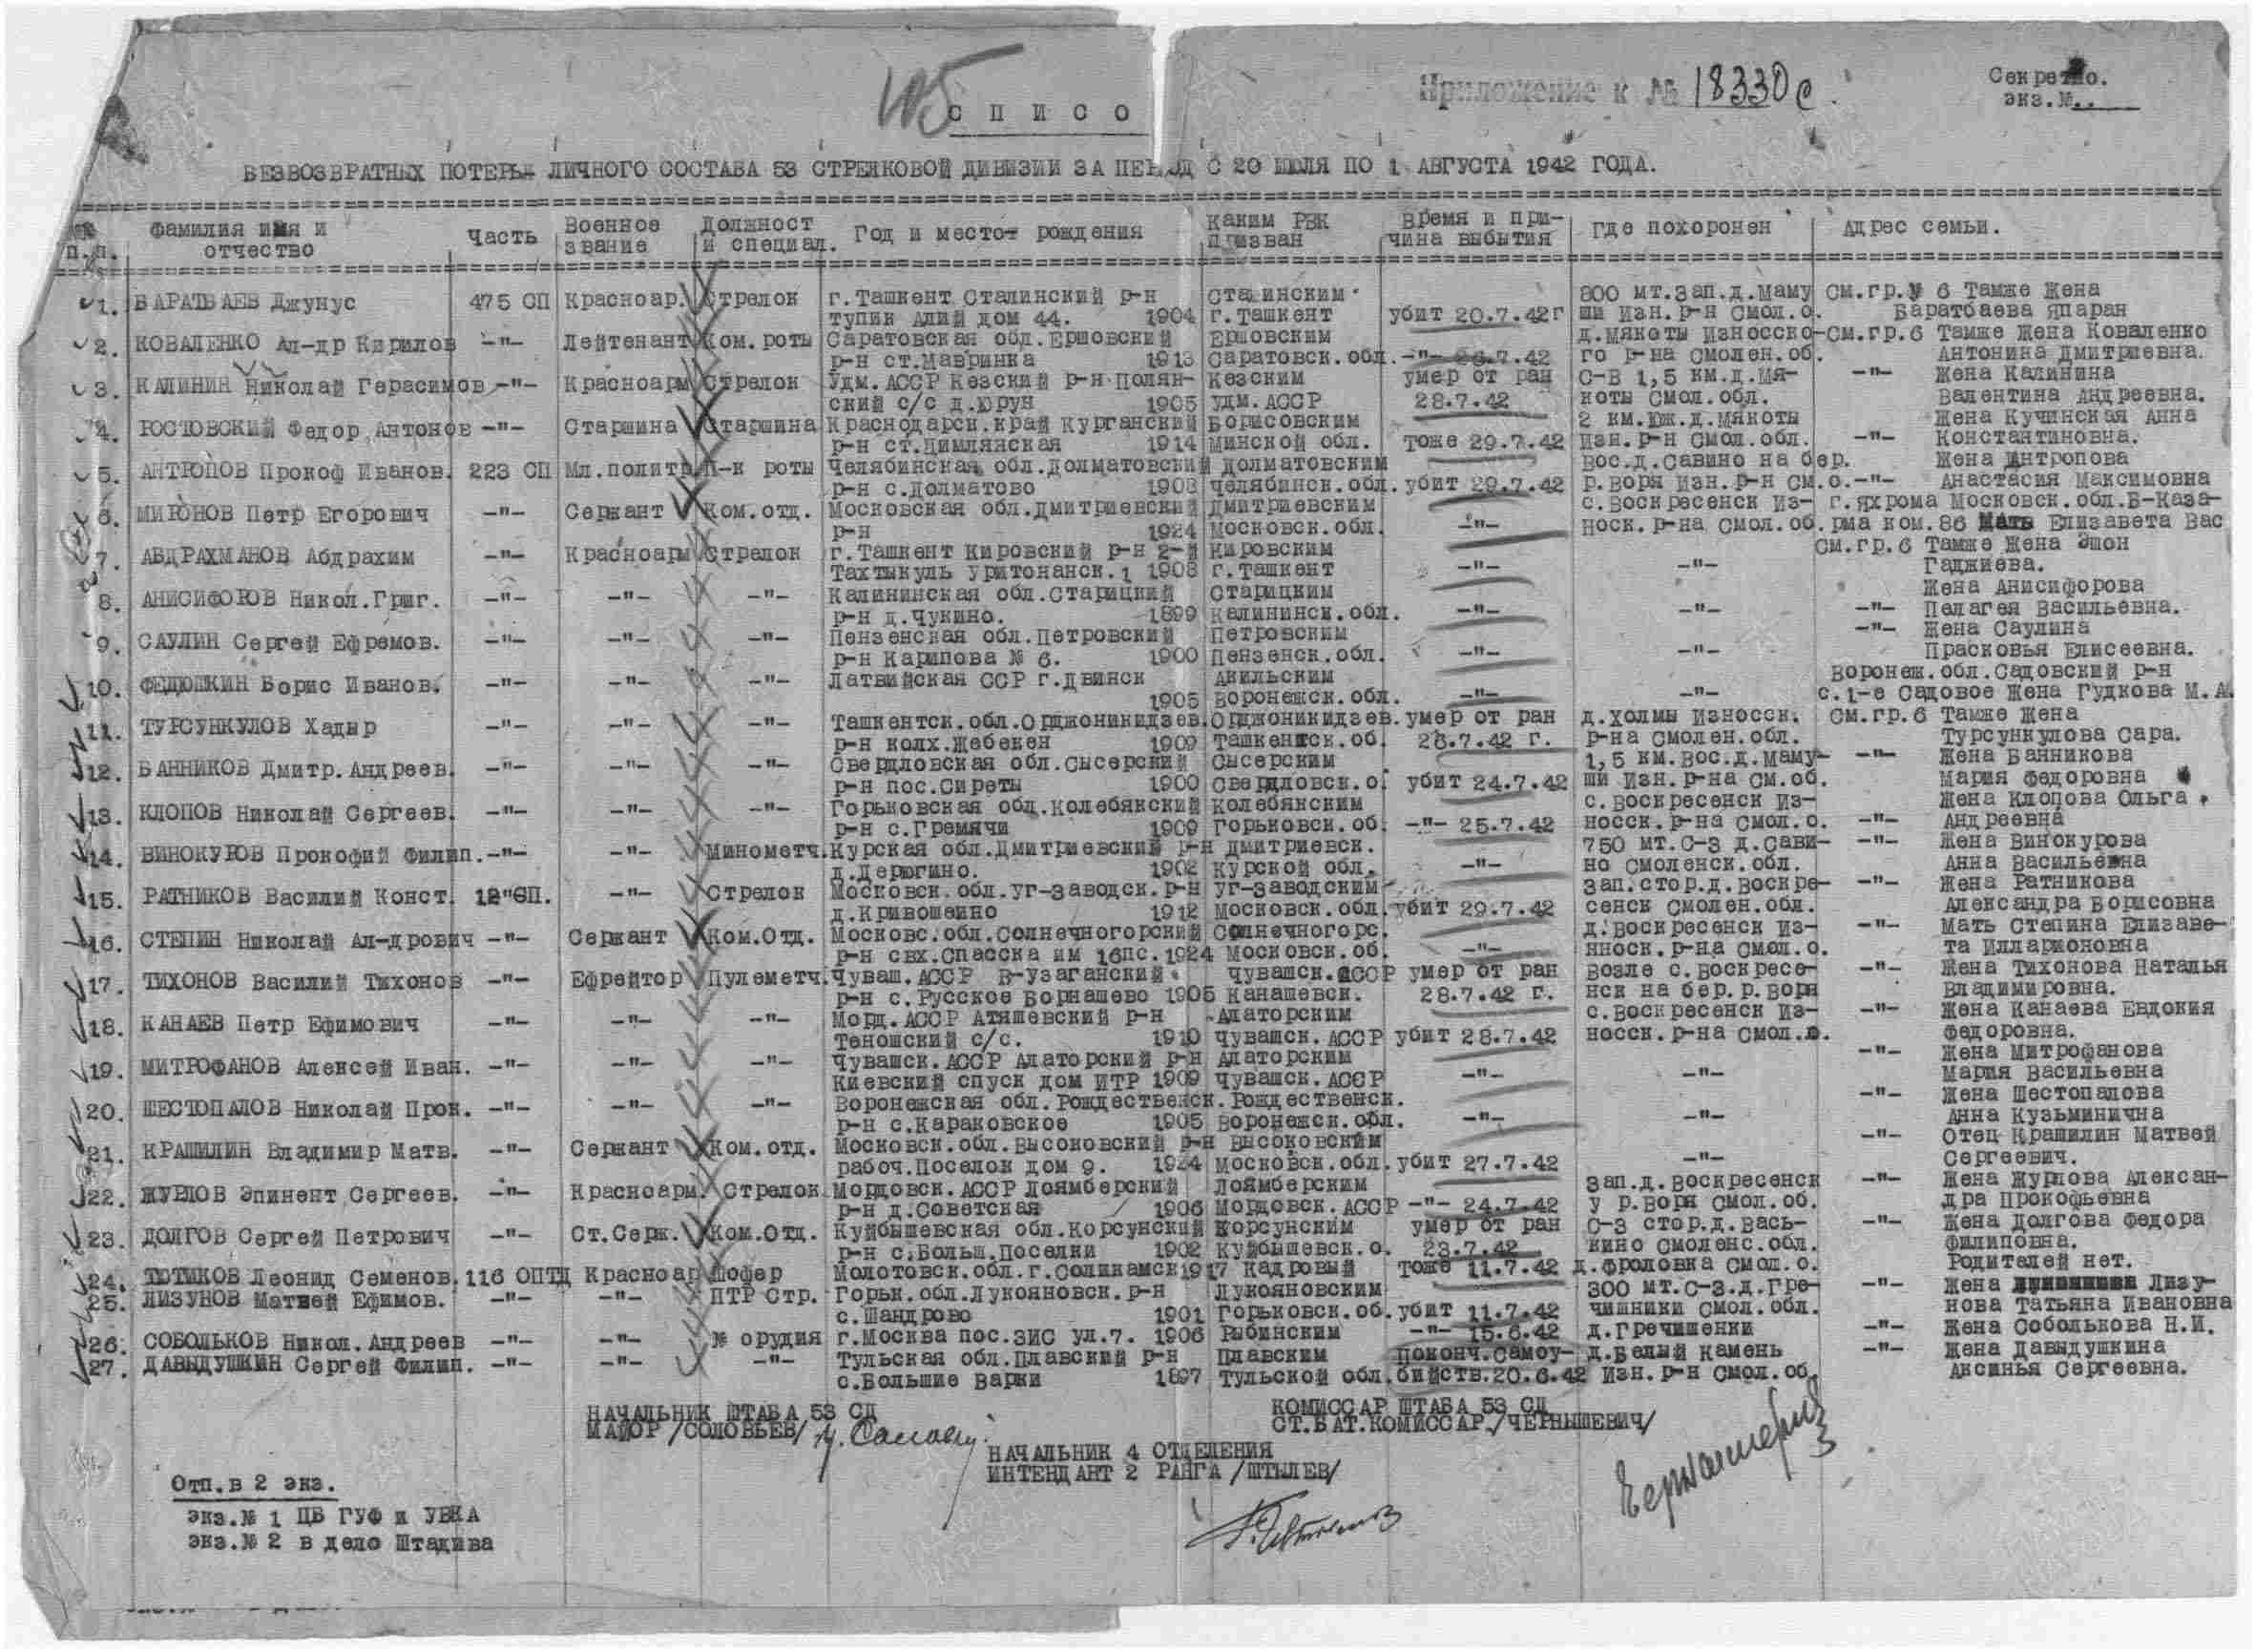 Приложение к № 18330с
Секретно.
экз.№
СПИСО
БЕЗВОЗВРАТНЫХ ПОТЕРЬ ЛИЧНОГО СОСТАВА 53 СТРЕЛКОВОЙ ДИВИЗИИ ЗА ПЕРИОД С 20 ИЮЛЯ ПО 1 АВГУСТА 1942 ГОДА.
п.п. Фамилия имя и отчество Часть Военное звание Должност и специал. Год и место рождения Каким РВК призван Время и причина выбытия Где похоронен Адрес семьи.
1. БАРАТБАЕВ Джунус 475 СП Красноар. Стрелок г.Ташкент Сталинский р-н Сталинским 800 мт.зап.д.Маму См.гр. 6 Тамже Жена
тупик Алий дом 44. 1904 г.Ташкент убит 20.7.42г ши Изн.р-н Смол.о. Баратбаева Япаран
2. КОВАЛЕНКО Ал-др Кирилов -"- Лейтенант Ком.роты Саратовская обл.Ершовский Ершовским д.Мякоты Износско- См.гр.6 Тамже Жена Коваленко
р-н ст.Мавринка 1913 Саратовск.обл. -"- 26.7.42 го р-на Смолен.об. Антонина Дмитриевна.
3. КАЛИНИН Николай Герасимов -"- Красноарм Стрелок Удм.АССР Кезский р-н Полян- Кезским умер от ран С-В 1,5 км.д.Мя- -"- Жена Калинина
ский с/с д.Юрун 1905 Удм.АССР 28.7.42 коты Смол.обл. Валентина Андреевна.
4. РОСТОВСКИЙ Федор Антонов -"- Старшина Старшина Краснодарск.край Курганский Борисовским 2 км.Юж.д.Мякоты Жена Кучинская Анна
р-н ст.Цимлянская 1914 Минской обл. тоже 29.7.42 Изн.р-н Смол.обл. -"- Константиновна.
5. АНТРОПОВ Прокоф Иванов. 223 СП Мл.политр. П-к роты Челябинская обл.Долматовский Долматовским вос.д.Савино на бер. Жена Антропова
р-н с.Долматово 1908 Челябинск.обл. убит 29.7.42 р.Воря Изн.р-н См.о. -"- Анастасия Максимовна
6. МИРОНОВ Петр Егорович -"- Сержант Ком.отд. Московская обл.Дмитриевский Дмитриевским с.Воскресенск Из- г.Яхрома Московск.обл.Б-Каза-
р-н 1924 Московск.обл. -"- носк.р-на Смол.об. рма ком.86 Мать Елизавета Вас
7. АБДРАХМАНОВ Абдрахим -"- Красноарм Стрелок г.Ташкент Кировский р-н 2-й Кировским См.гр.6 Тамже Жена Эшон
Тахтыкуль Уритонанск.1 1908 г.Ташкент -"- -"- Гаджиева.
8. АНИСИФОРОВ Никол.Григ. -"- -"- -"- Калининская обл.Старицкий Старицким Жена Анисифорова
р-н д.Чукино. 1899 Калининск.обл. -"- -"- -"- Пелагея Васильевна.
9. САУЛИН Сергей Ефремов. -"- -"- -"- Пензенская обл.Петровский Петровским -"- Жена Саулина
р-н Карипова № 6. 1900 Пензенск.обл. -"- -"- Прасковья Елисеевна.
10. ФЕДЮШКИН Борис Иванов. -"- -"- -"- Латвийская ССР г.Двинск Акильским Воронеж.обл.Садовский р-н
1905 Воронежск.обл. -"- -"- с.1-е Садовое Жена Гудкова М.А.
11. ТУРСУНКУЛОВ Хадыр -"- -"- -"- Ташкентск.обл.Орджоникидзев. Орджоникидзев. умер от ран д.Холмы Износск. См.гр.6 Тамже Жена
р-н колх.Жебекен 1909 Ташкентск.об. 26.7.42 г. р-на Смолен.обл. Турсункулова Сара.
12. БАННИКОВ Дмитр.Андреев. -"- -"- -"- Свердловская обл.Сысерский Сысерским 1,5 км.вос.д.Маму- -"- Жена Банникова
р-н пос.Сиреты 1900 Свердловск.о. убит 24.7.42 ши Изн.р-на См.об. Мария Федоровна
13. КЛОПОВ Николай Сергеев. -"- -"- -"- Горьковская обл.Колебякский Колебякским с.Воскресенск Из- Жена Клопова Ольга
р-н с.Гремячи 1909 Горьковск.об. -"- 25.7.42 носск.р-на Смол.о. -"- Андреевна
14. ВИНОКУРОВ Прокофий Филип. -"- -"- Минометч. Курская обл.Дмитриевский р-н Дмитриевск. 750 мт.С-З д.Сави- -"- Жена Винокурова
д.Дерюгино. 1902 Курской обл. -"- но Смоленск.обл. Анна Васильевна
15. РАТНИКОВ Василий Конст. 12 СП. -"- Стрелок Московск.обл.Уг-Заводск.р-н Уг-Заводским зап.стор.д.Воскре- -"- Жена Ратникова
д.Кривошеино 1912 Московск.обл. убит 29.7.42 сенск Смолен.обл. Александра Борисовна
16. СТЕПИН Николай Ал-дрович -"- Сержант Ком.Отд. Московс.обл.Солнечногорский Солнечногорс. д.Воскресенск Из- -"- Мать Степина Елизаве-
р-н свх.Спасска им 16пс. 1924 Московск.об. -"- нноск.р-на Смол.о. та Илларионовна
17. ТИХОНОВ Василий Тихонов -"- Ефрейтор Пулеметч. Чуваш.АССР В-Узаганский Чувашск.АССР умер от ран возле с.Воскресе- -"- Жена Тихонова Наталья
р-н с.Русское Борнашево 1905 Канашевск. 28.7.42 г. нск на бер.р.Воря Владимировна.
18. КАНАЕВ Петр Ефимович -"- -"- -"- Морд.АССР Атяшевский р-н Алаторским с.Воскресенск Из- -"- Жена Канаева Евдокия
Теношский с/с. 1910 Чувашск.АССР убит 28.7.42 носск.р-на Смол.о. Федоровна.
19. МИТРОФАНОВ Алексей Иван. -"- -"- -"- Чувашск.АССР Алаторский р-н Алаторским -"- Жена Митрофанова
Киевский спуск дом ИТР 1909 Чувашск.АССР -"- -"- Мария Васильевна
20. ШЕСТОПАЛОВ Николай Прок. -"- -"- -"- Воронежская обл.Рождественск. Рождественск. -"- Жена Шестопалова
р-н с.Караковское 1905 Воронежск.обл. -"- -"- Анна Кузьминична
21. КРАШИЛИН Владимир Матв. -"- Сержант Ком.отд. Московск.обл.Высоковский р-н Высоковским -"- Отец Крашилин Матвей
рабоч.Поселок дом 9. 1924 Московск.обл. убит 27.7.42 -"- Сергеевич.
22. ЖУРЛОВ Эпинент Сергеев. -"- Красноарм. Стрелок Мордовск.АССР Лоямберский Лоямберским зап.д.Воскресенск -"- Жена Журлова Алексан-
р-н д.Советская 1906 Мордовск.АССР -"- 24.7.42 у р.Воря Смол.об. дра Прокофьевна
23. ДОЛГОВ Сергей Петрович -"- Ст.Серж. Ком.Отд. Куйбышевская обл.Корсунский Корсунским умер от ран С-З стор.д.Вась- -"- Жена Долгова Федора
р-н с.Больш.Поселки 1902 Куйбышевск.о. 23.7.42 кино Смоленс.обл. Филиповна.
24. ТЮТИКОВ Леонид Семенов. 116 ОПТД Красноар Шофер Молотовск.обл.г.Соликамск 1917 Кадровый тоже 11.7.42 д.Фроловка Смол.о. Родителей нет.
25. ЛИЗУНОВ Матвей Ефимов. -"- -"- ПТР Стр. Горьк.обл.Лукояновск.р-н Лукояновским 300 мт.С-З.д.Гре- -"- Жена Лизу-
с.Шандрово 1901 Горьковск.об. убит 11.7.42 чишники Смол.обл. нова Татьяна Ивановна
26. СОБОЛЬКОВ Никол.Андреев -"- -"- № орудия г.Москва пос.ЗИС ул.7. 1906 Рыбинским -"- 15.6.42 д.Гречишенки -"- Жена Соболькова Н.И.
27. ДАВЫДУШКИН Сергей Филип. -"- -"- -"- Тульская обл.Плавский р-н Плавским Поконч.самоу- д.Белый Камень -"- Жена Давыдушкина
с.Большие Варки 1897 Тульской обл. бийств.20.6.42 Изн.р-н Смол.об. Аксинья Сергеевна.
НАЧАЛЬНИК ШТАБА 53 СД
МАЙОР /СОЛОВЬЕВ/
КОМИССАР ШТАБА 53 СД
СТ.БАТ.КОМИССАР /ЧЕРНЫШЕВИЧ/
НАЧАЛЬНИК 4 ОТДЕЛЕНИЯ
ИНТЕНДАНТ 2 РАНГА /ШТЫЛЕВ/
Отп.в 2 экз.
экз.№ 1 ЦБ ГУФ и УВКА
экз.№ 2 в дело Штадива